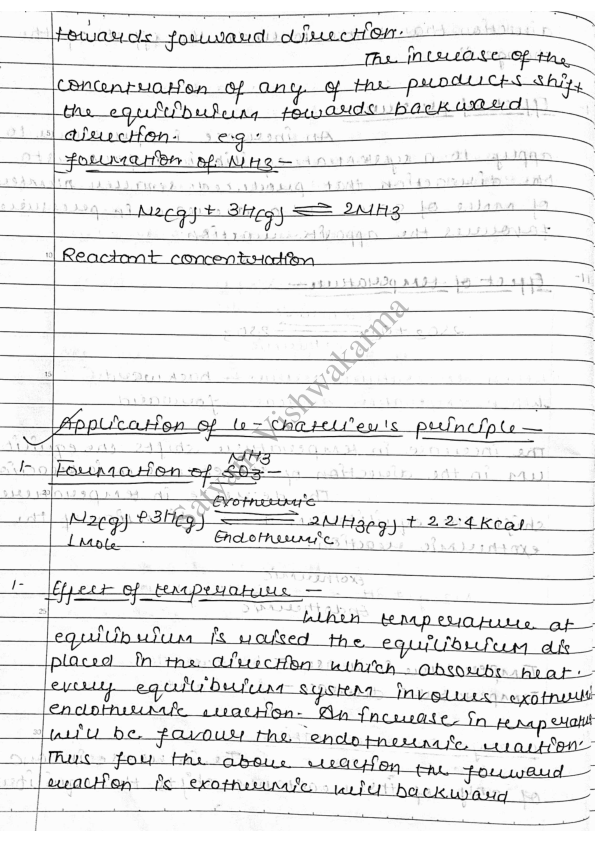 towards forward direction.
The increase of the
concentration of any of the products shift
the equilibrium towards backward
direction. e.g.
formation of NH3 -
N2(g) + 3H(g) ⇌ 2NH3
Reactant concentration
Application of le-chatelier's principle -
1- Formation of SO3 - NH3
Exothermic
N2(g) + 3H(g) ⇌ 2NH3(g) + 22.4 Kcal
1 Mole Endothermic
1- Effect of temperature -
When temperature at
equilibrium is raised the equilibrium dis
placed in the direction which absorbs heat.
every equilibrium system involves exothermic
endothermic reaction. An increase in temperature
will be favour the endothermic reaction.
Thus for the above reaction the forward
reaction is exothermic will backward
Satyam Vishwakarma